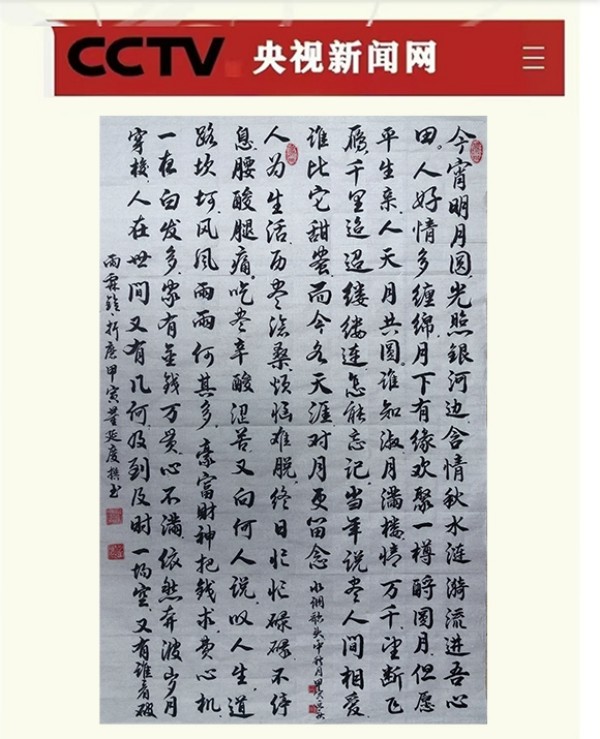 CCTV 央视新闻网
今宵明月圆光照銀河边含情秋水涟漪流进吾心
田人好情多缠绵月下有缘欢聚一樽酹圆月但愿
平生亲人天月共圆谁知淑月满楼情万千望断飞
雁千里迢迢缕缕连怎能忘记当年说尽人间相爱
谁比它甜尝而今各天涯对月更留念 水调歌头中秋月
人为生活历尽沧桑烦恼难脱终日忙忙碌碌不停
息腰酸腿痛吃尽辛酸涩苦又向何人说叹人生道
路坎坷风风雨雨何其多豪富财神把钱求费心机
一夜白发多家有金钱万贯心不满依然奔波岁月
穿梭人在世间又有几何及到及时一场空又有谁看破
雨霖铃抒怀甲寅董延庆撰书